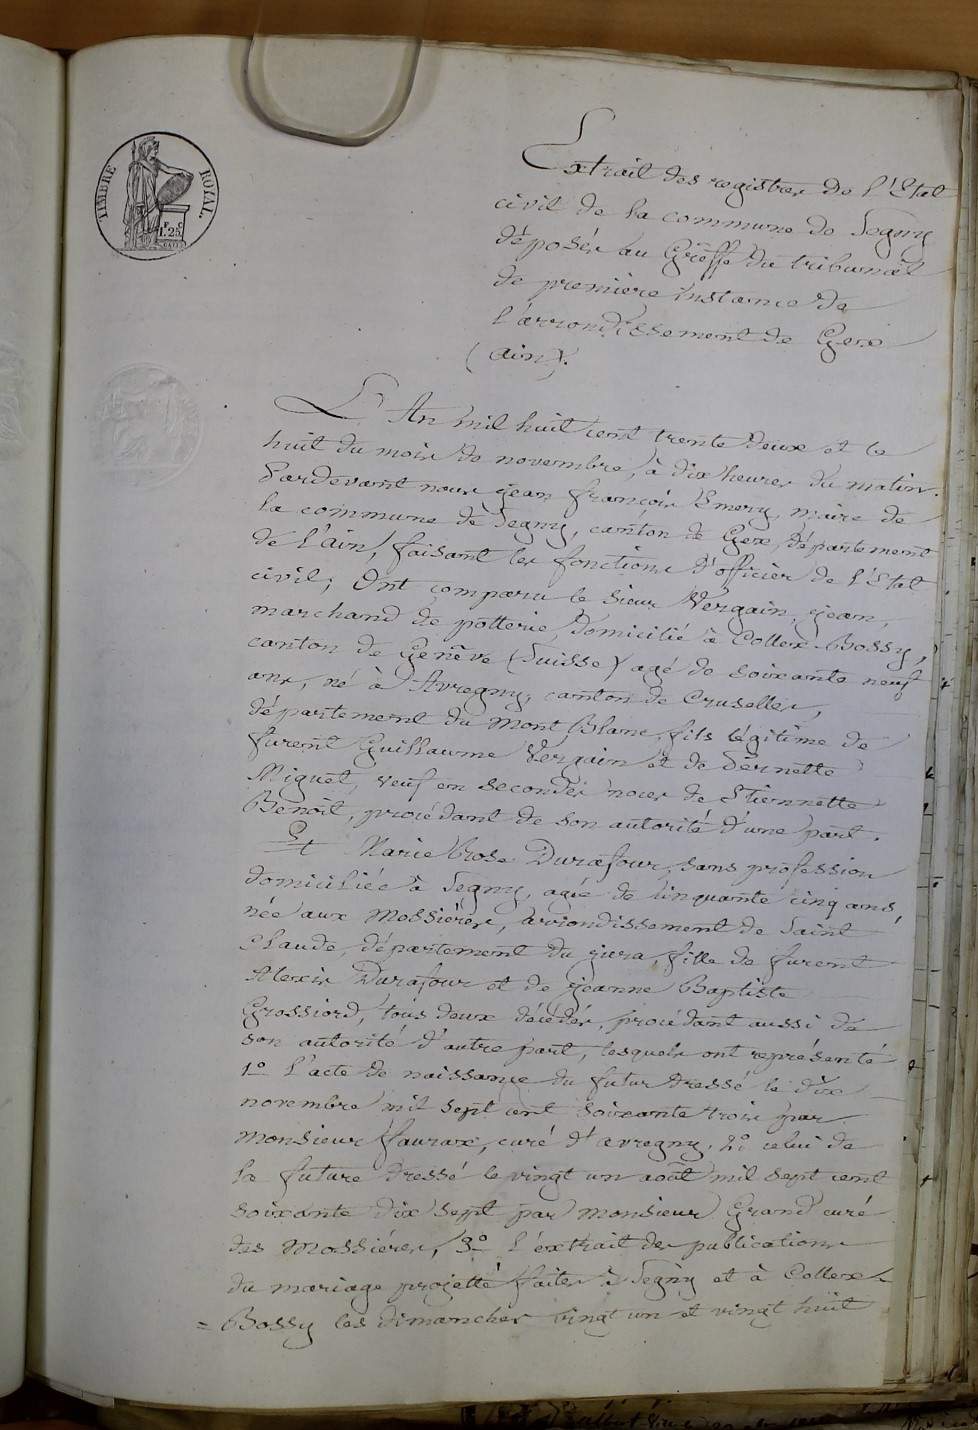 TIMBRE ROYAL.
F. C.
1. 25.
Extrait des registres de l'Etat
civil de la commune de Segny
déposés au Greffe du tribunal
de première instance de
l'arrondissement de Gex
(ain).
L'An mil huit cent trente deux et le
huit du mois de novembre, à dix heures du matin.
Pardevant nous jean françois Emery, maire de
la commune de Segny, canton de Gex, département
de l'ain, faisant les fonctions d'officier de l'Etat
civil; Ont comparu le sieur Vergain, jean,
marchand de potterie, domicilié à Collex-Bossy,
canton de Genêve (Suisse) agé de soixante neuf
ans, né à Avregny, canton de Cruselles,
département du Mont Blanc, fils légitime de
furent Guillaume Vergain et de Pernette
Miguet, veuf en secondes noces de Etiennette
Benoît, procédant de son autorité d'une part.
Et Marie Rose Durafour, sans profession
domiciliée à Segny, agée de cinquante cinq ans,
née aux Mossières, arrondissement de Saint
Claude, département du jura, fille de furent
Alexis Durafour et de jeanne Baptiste
Grossiord, tous deux décédés, procédant aussi de
son autorité d'autre part, lesquels ont représenté
1o l'acte de naissance du futur dressé le dix
novembre mil sept cent soixante trois par
Monsieur favrax, curé d'avregny. 2o celui de
la future dressé le vingt un août mil sept cent
soixante dix sept par Monsieur Grand curé
des Mossières, 3o l'extrait des publications
du mariage projetté faites à Segny et à Collex-
=Bossy les dimanches vingt un et vingt huit